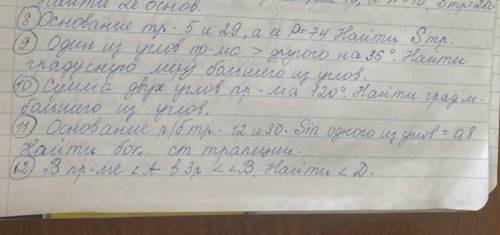 Найти 2е основ.
⑧ Основание тр. 5 и 29, а её P=74 Найти Sтр.
⑨ Один из углов пр-ма > другого на 36°. Найти
градусную меру большего из углов.
⑩ Сумма двух углов пр-ма 120°. Найти град м.
большего из углов.
⑪ Основание р/б тр. 12 и 30. Sin одного из углов = 0,8
Найти бок. ст трапеции.
⑫ В пр-ме ∠A в 3р < ∠B. Найти ∠D.